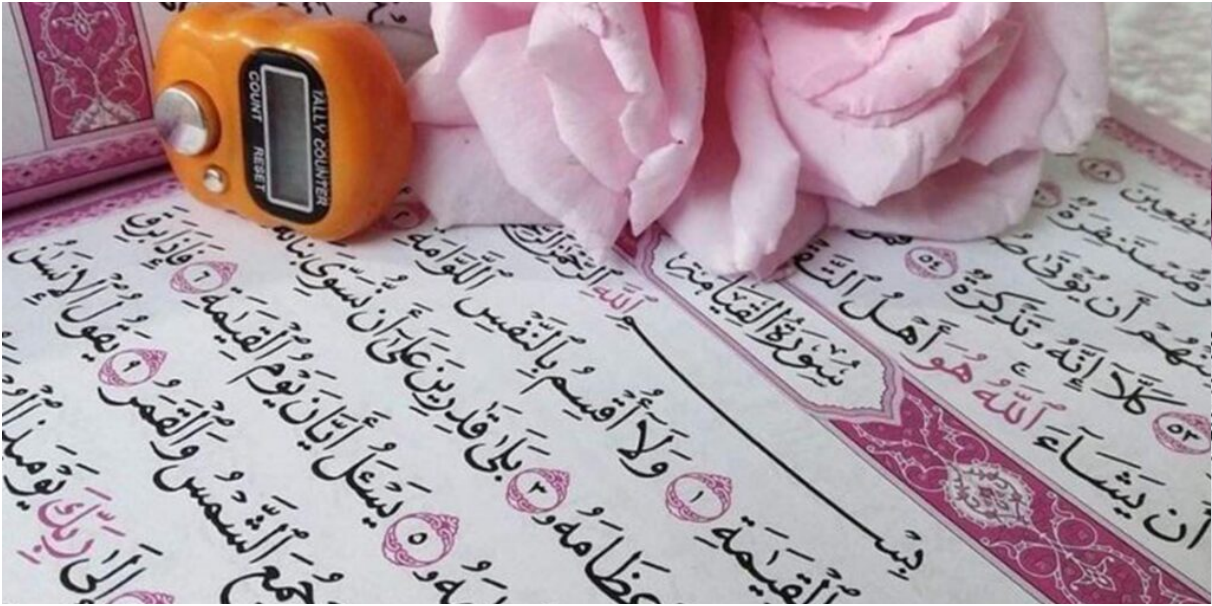 TALLY COUNTER
COUNT RESET
٤٨
مُّسْتَنفِرَةٌ
أَن يُؤْتَىٰ
٥٣ كَلَّآ إِنَّهُۥ تَذْكِرَةٌ ٥٤
أَن يَشَآءَ ٱللَّهُ هُوَ أَهْلُ
سُورَةُ القِيَامَةِ
بِسْمِ ٱللَّهِ ٱلرَّحْمَٰنِ
ٱلْقِيَٰمَةِ ١ وَلَآ أُقْسِمُ بِٱلنَّفْسِ ٱللَّوَّامَةِ ٢
عِظَامَهُۥ ٣ بَلَىٰ قَٰدِرِينَ عَلَىٰٓ أَن نُّسَوِّىَ بَنَانَهُۥ
٥ يَسْـَٔلُ أَيَّانَ يَوْمُ ٱلْقِيَٰمَةِ ٦ فَإِذَا بَرِقَ
وَجُمِعَ ٱلشَّمْسُ وَٱلْقَمَرُ ٩ يَقُولُ ٱلْإِنسَٰنُ
إِلَىٰ رَبِّكَ يَوْمَئِذٍ